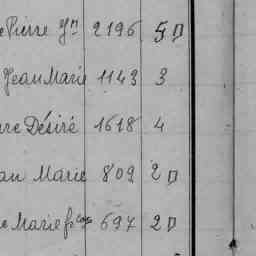 Pierre Jn 2196 5 D
Jean Marie 1143 3
Désiré 1618 4
an Marie 809 2 D
Marie fs 697 2 D